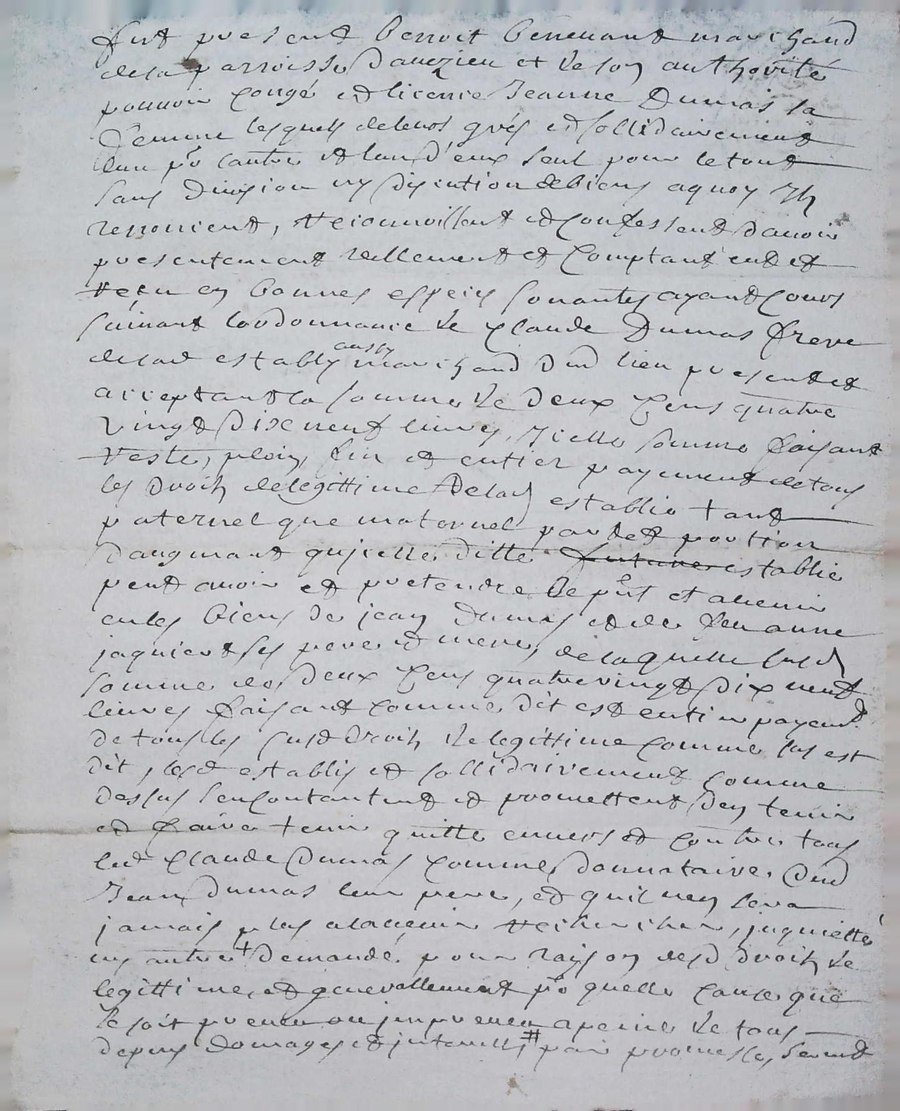 fust present benoit benevant marchand
de la parroisse davezieu et de son authorité
pouvoir congé et licence Jeanne Dumas sa
femme lesquels de leurs grés et sollidairement
lun pr lautre et lun d'eux seul pour le tout
sans division ny discution de biens a quoy ils
renoncent, reconnoissent et confessent d'avoir
presentement reellement et comptant eu et
receu en bonnes especes sonantes ayant cours
suivant lordonnance de Claude Dumas frere
de lad establie aussy marchand dud lieu present et
acceptant la somme de deux cens quatre
vingt dix neuf livres, Icelle somme faisant
reste, plein, fin et entier payement de tous
les droits de legittime de lad establie tant
paternel que maternel part et portion
daugmant qu'icelle ditte future establie
peut avoir et pretendre de pnt et advenir
en les biens de jean dumas et de feu anne
jaquier ses pere et mere, de laquelle susd
somme de deux cens quatre vingt dix neuf
livres faisant comme dit est entier payemt
de tous les susd droits de legittime comme sus est
dit, lesd establis et sollidairement comme
dessus sen contantent et promettent den tenir
et faire tenir quitte envers et contre tous
led Claude Dumas comme donnataire dud
Jean dumas leur pere, et quil nen sera
jamais plus a ladvenir recherché, inquietté
ny autremt demandé pour raison desd droits de
legittime, et generallement pr quelle cause que
ce soit preveu ou impreveu a peine de tous
depens domages et interests # par promesse, sermt